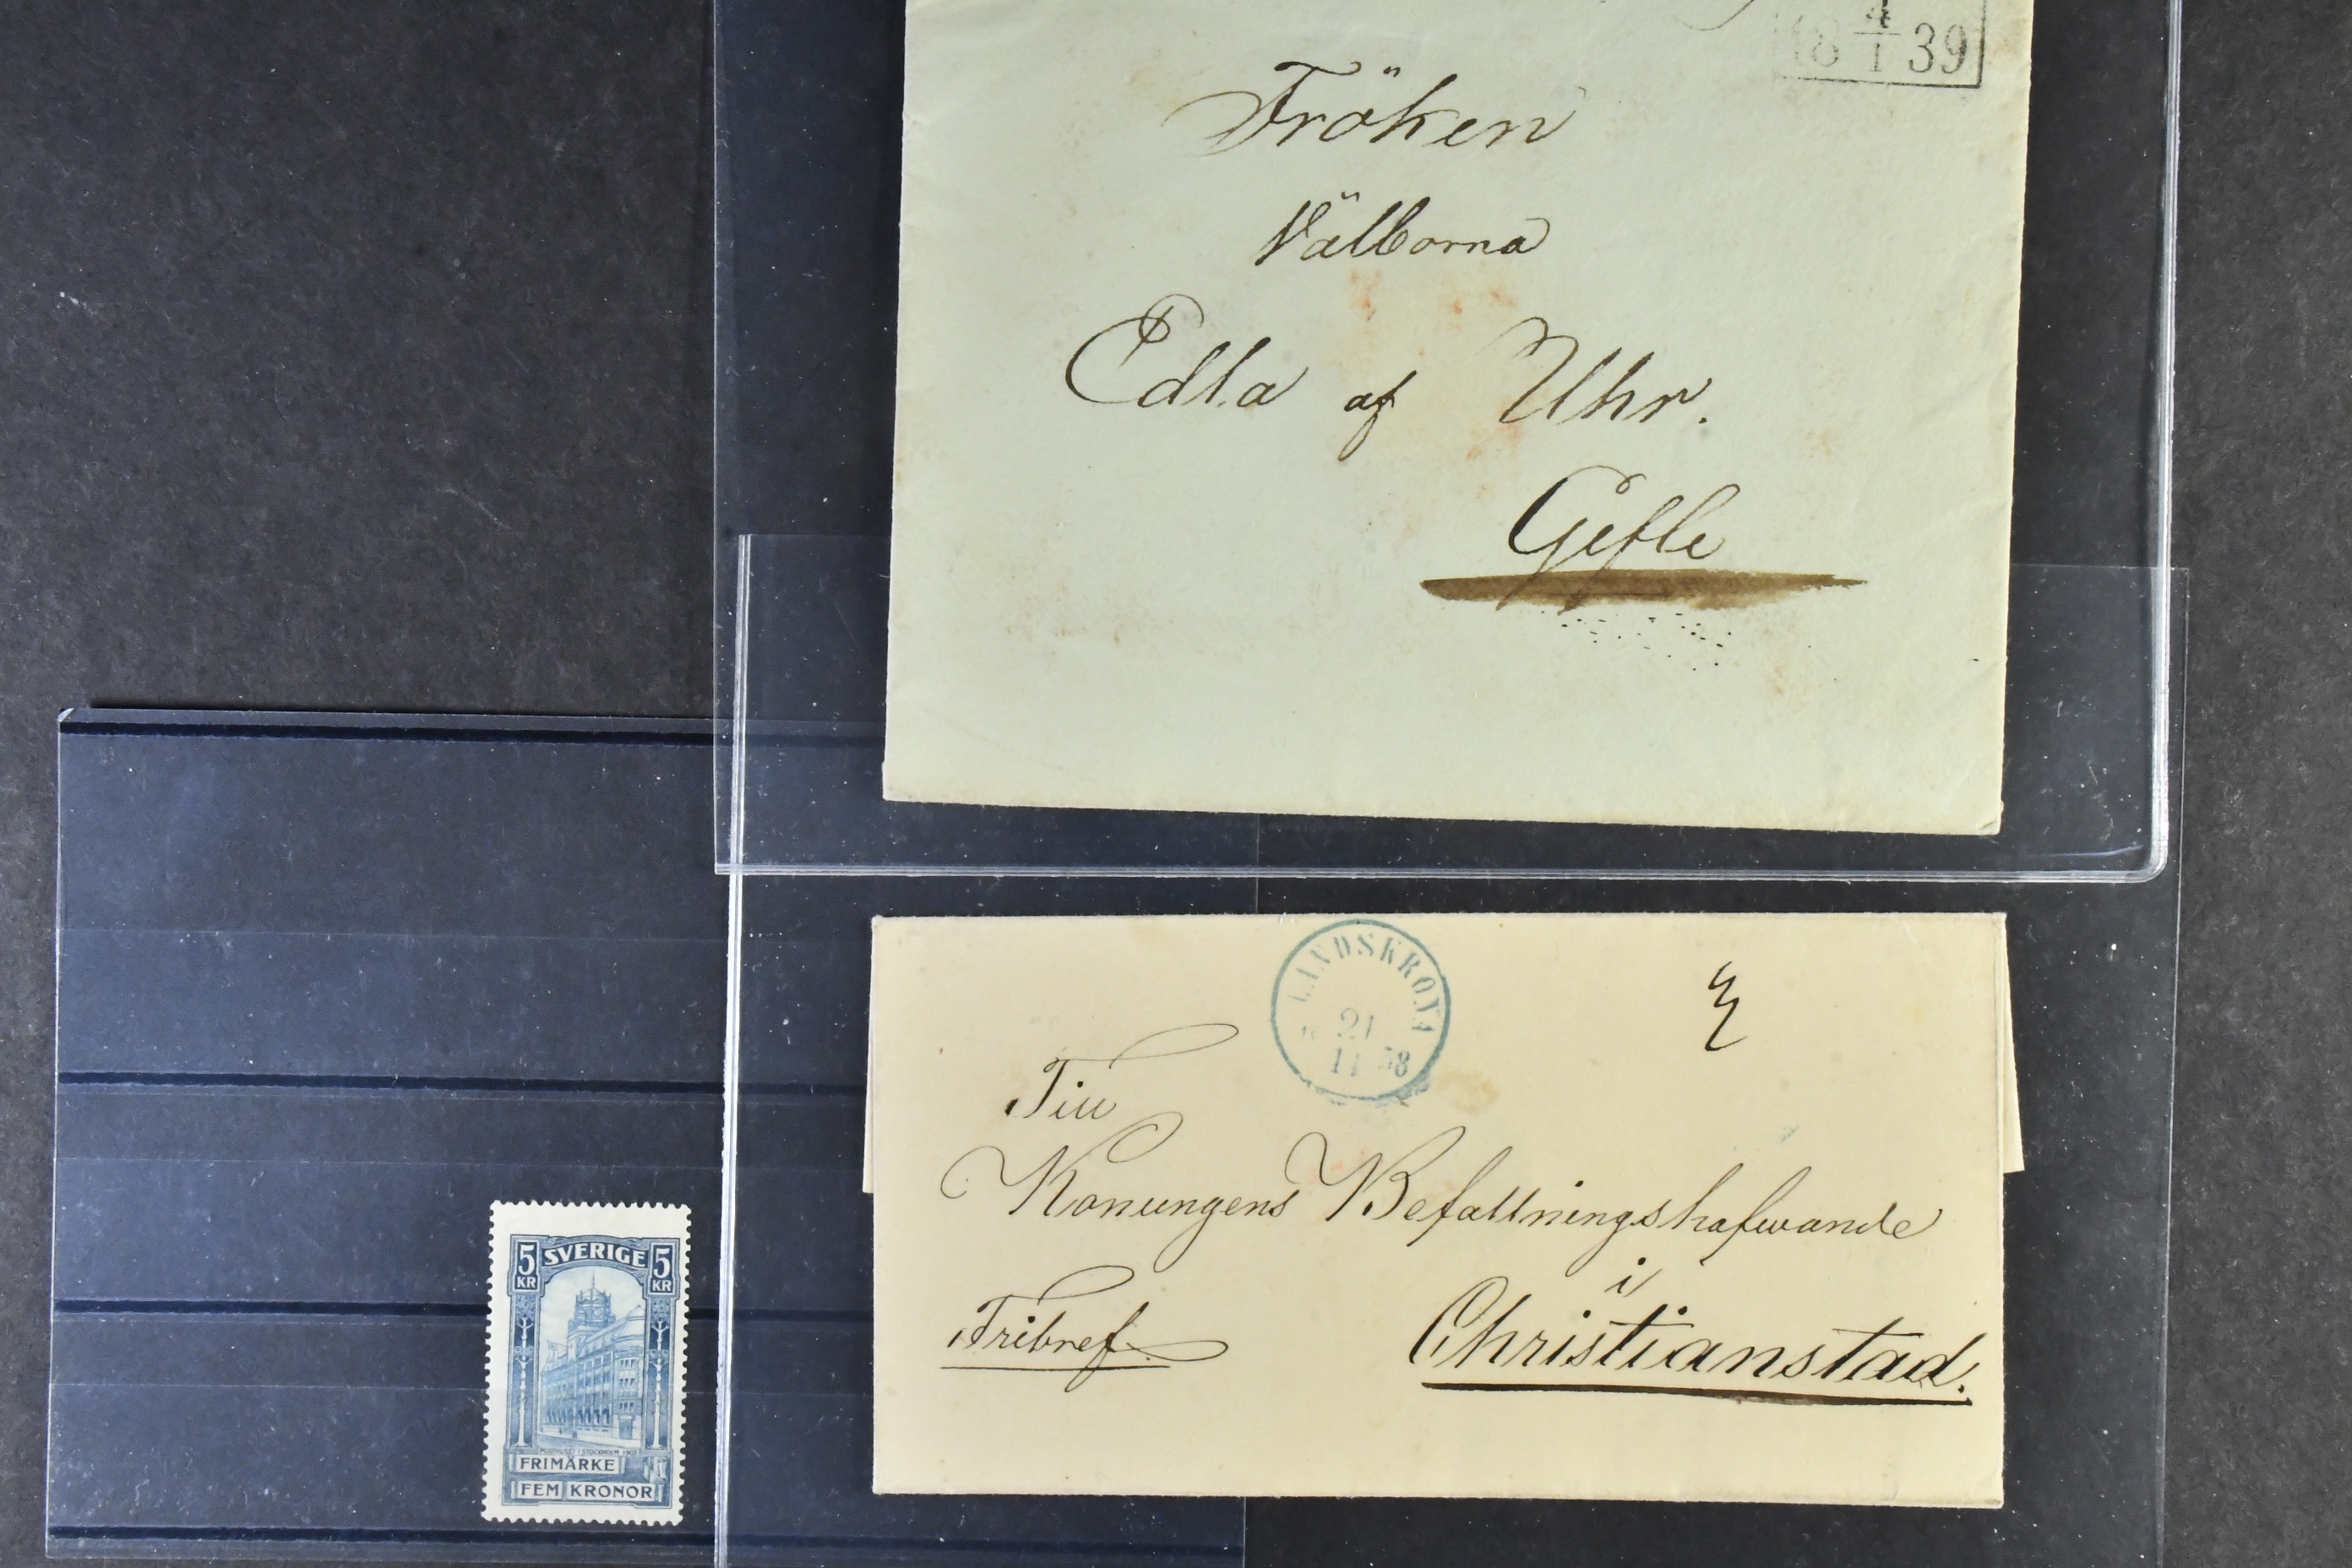 18 4/1 39
Fröken
Välborna
Edla af Uhr.
Gefle
LANDSKRONA
21
11 58
Till
Konungens Befallningshafwande
i
Christianstad.
Fribref.
5 SVERIGE 5
KR KR
POSTHUSET I STOCKHOLM 1903
FRIMÄRKE
FEM KRONOR